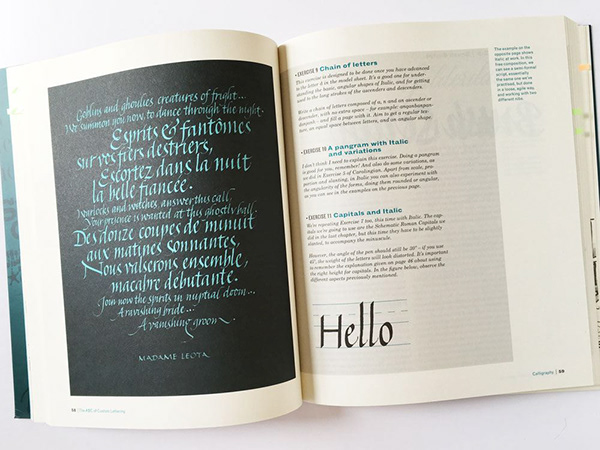 Goblins and ghoulies creatures of fright...
We summon you now, to dance through the night.
Esprits & fantômes
sur vos fiers destriers,
Escortez dans la nuit
la belle fiancée.
Warlocks and witches, answer this call.
Your presence is wanted at this ghostly ball.
Des douze coups de minuit
aux matines sonnantes,
Nous valserons ensemble,
macabre débutante.
Join now the spirits in nuptial doom...
A ravishing bride...
A vanishing groom.
MADAME LEOTA
58 | The ABC of Custom Lettering
EXERCISE 9 Chain of letters
This exercise is designed to be done once you have advanced
to the letter d in the model sheet. It's a good one for under-
standing the basic, angular shapes of Italic, and for getting
used to the long strokes of the ascenders and descenders.
Write a chain of letters composed of a, n and an ascender or
descender, with no extra space – for example:
and fill a page with it. Aim to get a regular tex-
ture, an equal space between letters, and an angular shape.
EXERCISE 10 A pangram with Italic
and variations
I don't think I need to explain this exercise. Doing a pangram
is good for you, remember! And also do some variations, as
we did in Exercise 5 of Carolingian. Apart from scale, pro-
portion and slanting, in Italic you can also experiment with
the angularity of the forms, doing them rounded or angular,
as you can see in the examples on the previous page.
EXERCISE 11 Capitals and Italic
We're repeating Exercise 7 too, this time with Italic. The cap-
itals we're going to use are the Schematic Roman Capitals we
did in the last chapter, but this time they have to be slightly
slanted, to accompany the minuscule.
However, the angle of the pen should still be 30° – if you use
45°, the weight of the letters will look distorted. It's important
to remember the explanation given on page 46 about using
the right height for capitals. In the figure below, observe the
different aspects previously mentioned.
Hello
The example on the
opposite page shows
Italic at work. In this
free composition, we
can see a semi-formal
script, essentially
the same one we've
practised, but done
in a loose, agile way,
and working with two
different nibs
Calligraphy | 59